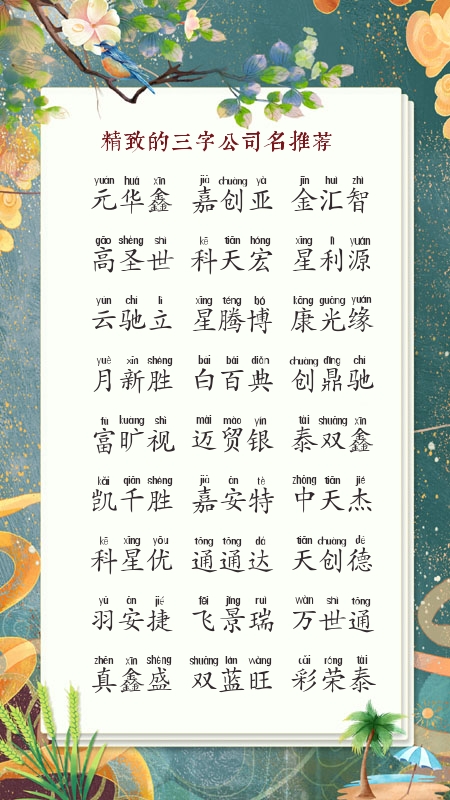 精致的三字公司名推荐
yuán huá xīn jiā chuàng yà jīn huì zhì
元华鑫 嘉创亚 金汇智
gāo shèng shì kē tiān hóng xīng lì yuán
高圣世 科天宏 星利源
yún chí lì xīng téng bó kāng guāng yuán
云驰立 星腾博 康光缘
yuè xīn shèng bái bǎi diǎn chuàng dǐng chí
月新胜 白百典 创鼎驰
fù kuàng shì mài mào yín tài shuāng xīn
富旷视 迈贸银 泰双鑫
kǎi qiān shèng jiā ān tè zhōng tiān jié
凯千胜 嘉安特 中天杰
kē xīng yōu tōng tōng dá tiān chuàng dé
科星优 通通达 天创德
yǔ ān jié fēi jǐng ruì wàn shì tōng
羽安捷 飞景瑞 万世通
zhēn xīn shèng shuāng lán wàng cǎi róng tài
真鑫盛 双蓝旺 彩荣泰